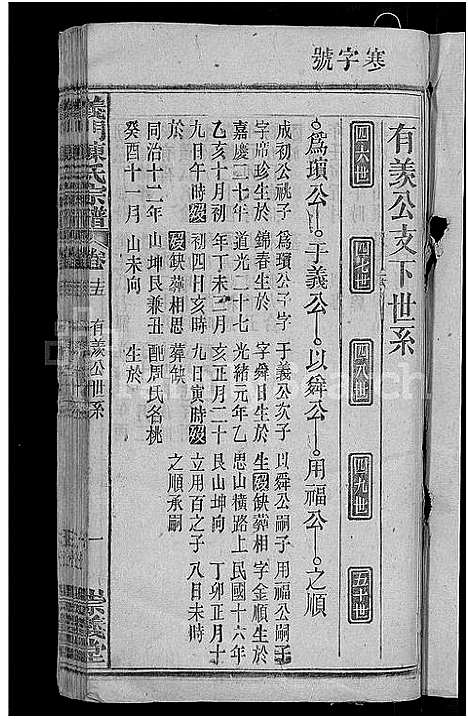 寒字號
有羨公支下世系
四六世 四七世 四八世 四九世 五十世
爲瑣公 于義公 以舜公 用福公 之順
成初公祧子 爲瑣公子字 于義公次子 以舜公嗣子 用福公嗣子
字席珍生於 錦春生於 字舜日生於 生歿缺葬相 字金順生於
嘉慶二十年 道光二十七 光緒元年乙 思山橫路上 民國十六年
乙亥十月初 年丁未二月 亥正月二十 艮山坤向 丁卯正月十
九日午時歿 初四日亥時 九日寅時歿 立用百之子 八日未時
於 歿缺葬相思 葬缺 之順承嗣
同治十二年 山坤艮兼丑 配周氏名桃
癸酉十一月 山未向 生於
義門陳氏宗譜 卷十五 有羨公世系 一 崇義堂